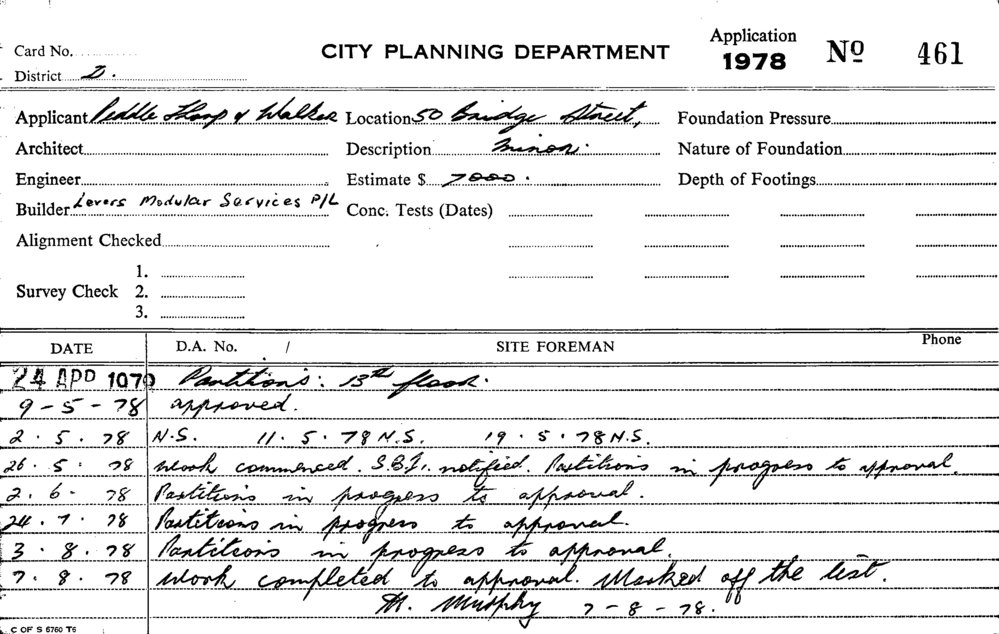 Application
Card No. CITY PLANNING DEPARTMENT 1978 Nº 461
District D.
Applicant Peddle Thorp & Walker Location 50 Bridge Street, Foundation Pressure
Architect Description Minor. Nature of Foundation
Engineer Estimate $ 7000. Depth of Footings
Builder Levers Modular Services P/L Conc. Tests (Dates)
Alignment Checked
1.
Survey Check 2.
3.
DATE D.A. No. / SITE FOREMAN Phone
24 APR 1978 Partitions. 13th floor.
9-5-78 approved.
2.5.78 N.S. 11.5.78 N.S. 19.5.78 N.S.
26.5.78 Work commenced. S.B.I. notified. Partitions in progress to approval.
2.6.78 Partitions in progress to approval.
24.7.78 Partitions in progress to approval.
3.8.78 Partitions in progress to approval.
7.8.78 Work completed to approval. Marked off the list.
M. Murphy 7-8-78.
C OF S 6760 T6